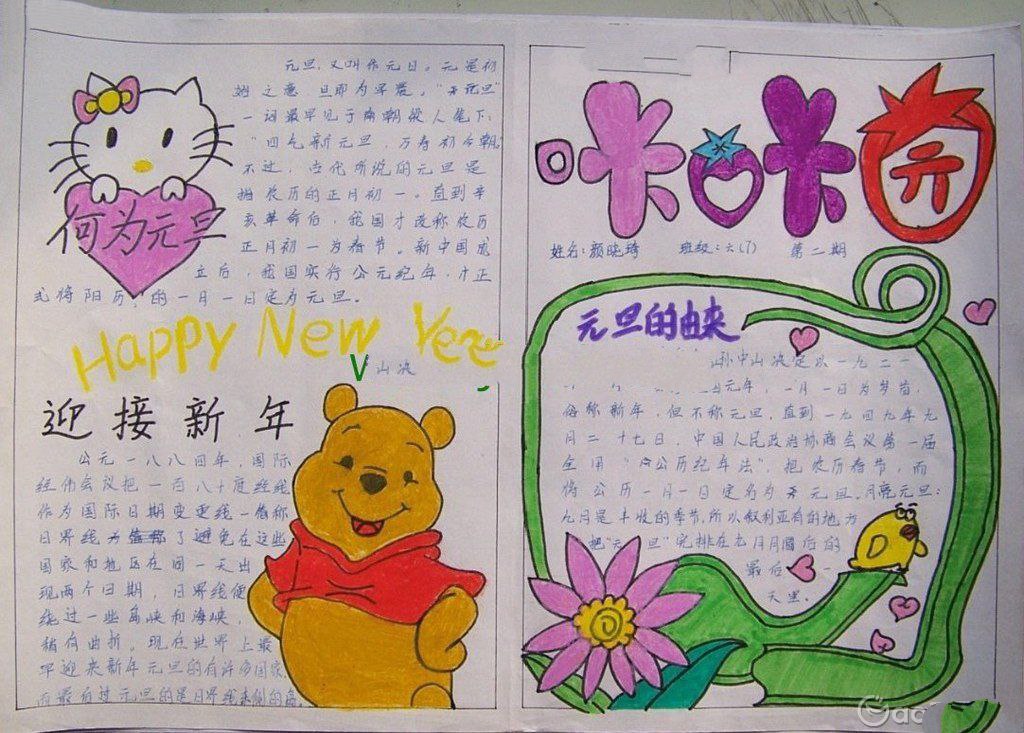 元旦,又叫作元日。元是初
始之意,旦即为早晨。"元旦"
一词最早见于南朝梁人笔下:
"四气新元旦,万寿初今朝
不过,当代所说的元旦是
指农历的正月初一。直到辛
亥革命后,我国才改称农历
正月初一为春节。新中国成
立后,我国实行公元纪年,才正
式将阳历的一月一日定为元旦。
何为元旦
Happy New Year
山决
迎接新年
公元一八八四年,国际
经伟会议把一百八十度经线
作为国际日期变更线一俗称
日界线为了避免在这些
国家和地区在同一天出
现两个日期,日界线便
绕过一些岛峡和海峡,
稍有曲折。现在世界上最
早迎来新年元旦的有许多国家
而最后过元旦的是日界线东侧的
咔口卡园
姓名:颜晓琦 班级:六(7) 第二期
元旦的由来
孙中山决定以一九二一
元年,一月一日为岁首
俗称新年,但不称元旦,直到一九四九年九
月二十七日,中国人民政治协商会议第一届
全用"公历纪年法",把农历春节,而
将公历一月一日定名为元旦。月亮元旦:
九月是丰收的季节,所以叙利亚有的地方
把"元旦"定排在九月月圆后的
最后一
天里。